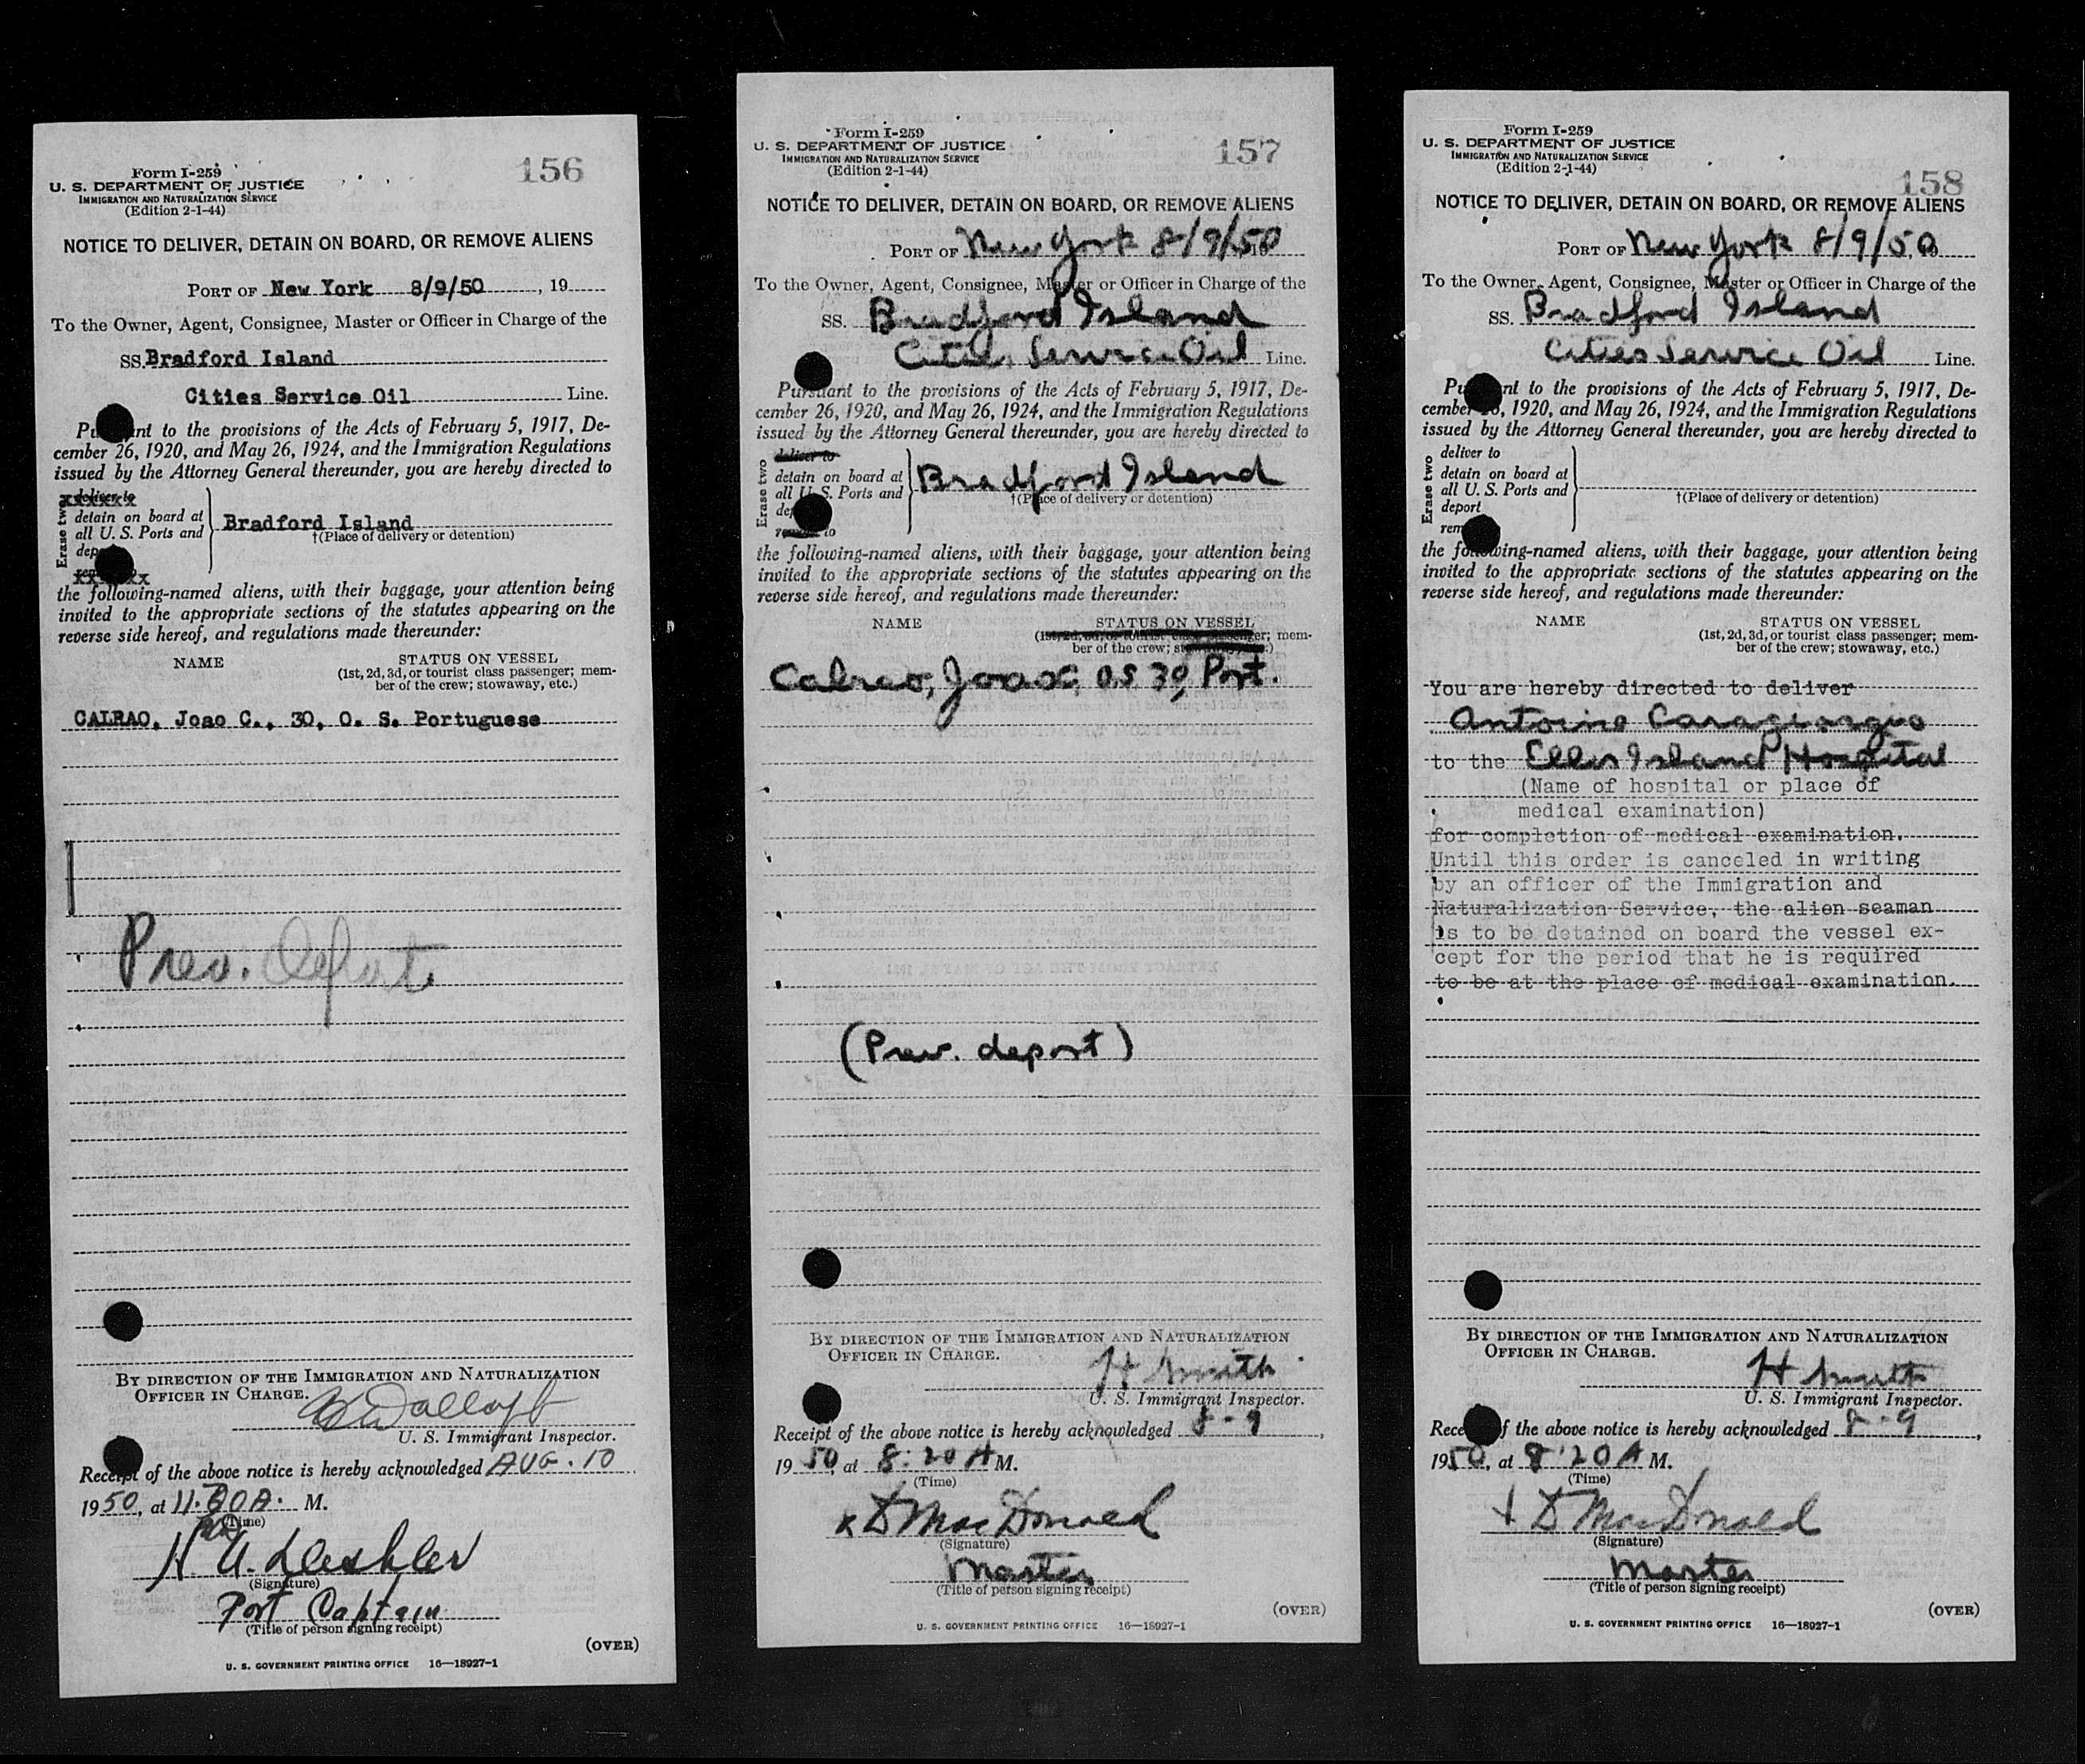 Form I-259
156
U. S. DEPARTMENT OF JUSTICE
IMMIGRATION AND NATURALIZATION SERVICE
(Edition 2-1-44)
NOTICE TO DELIVER, DETAIN ON BOARD, OR REMOVE ALIENS
PORT OF New York 8/9/50, 19
To the Owner, Agent, Consignee, Master or Officer in Charge of the
SS. Bradford Island
Cities Service Oil Line.
to the provisions of the Acts of February 5, 1917, De-
cember 26, 1920, and May 26, 1924, and the Immigration Regulations
issued by the Attorney General thereunder, you are hereby directed to
Erase two
deliver to
detain on board at
all U. S. Ports and
Bradford Island
†(Place of delivery or detention)
the following-named aliens, with their baggage, your attention being
invited to the appropriate sections of the statutes appearing on the
reverse side hereof, and regulations made thereunder:
NAME STATUS ON VESSEL
(1st, 2d, 3d, or tourist class passenger; mem-
ber of the crew; stowaway, etc.)
CALRAO, Joao C., 30, O. S. Portuguese
Prev. Deport
BY DIRECTION OF THE IMMIGRATION AND NATURALIZATION
OFFICER IN CHARGE.
U. S. Immigrant Inspector.
Receipt of the above notice is hereby acknowledged AUG. 10
1950, at 11. A. M.
(Time)
(Signature)
Port Captain
(Title of person signing receipt)
(OVER)
U. S. GOVERNMENT PRINTING OFFICE 16—18927-1
Form I-259
157
U. S. DEPARTMENT OF JUSTICE
IMMIGRATION AND NATURALIZATION SERVICE
(Edition 2-1-44)
NOTICE TO DELIVER, DETAIN ON BOARD, OR REMOVE ALIENS
PORT OF New York 8/9/50
To the Owner, Agent, Consignee, Master or Officer in Charge of the
SS. Bradford Island
Cities Service Oil Line.
Pursuant to the provisions of the Acts of February 5, 1917, De-
cember 26, 1920, and May 26, 1924, and the Immigration Regulations
issued by the Attorney General thereunder, you are hereby directed to
Erase two
deliver to
detain on board at
all U. S. Ports and
Bradford Island
†(Place of delivery or detention)
remove to
the following-named aliens, with their baggage, your attention being
invited to the appropriate sections of the statutes appearing on the
reverse side hereof, and regulations made thereunder:
NAME STATUS ON VESSEL
(1st, 2d, 3d, or tourist class passenger; mem-
ber of the crew; stowaway, etc.)
Calrao, Joao C, O.S 30, Port.
(Prev. deport)
BY DIRECTION OF THE IMMIGRATION AND NATURALIZATION
OFFICER IN CHARGE.
H Smith
U. S. Immigrant Inspector.
Receipt of the above notice is hereby acknowledged 8-9,
1950, at 8:20 A M.
(Time)
x D MacDonald
(Signature)
Master
(Title of person signing receipt)
(OVER)
U. S. GOVERNMENT PRINTING OFFICE 16—18927-1
Form I-259
U. S. DEPARTMENT OF JUSTICE
IMMIGRATION AND NATURALIZATION SERVICE
(Edition 2-1-44)
158
NOTICE TO DELIVER, DETAIN ON BOARD, OR REMOVE ALIENS
PORT OF New York 8/9/50
To the Owner, Agent, Consignee, Master or Officer in Charge of the
SS. Bradford Island
Cities Service Oil Line.
to the provisions of the Acts of February 5, 1917, De-
cember 26, 1920, and May 26, 1924, and the Immigration Regulations
issued by the Attorney General thereunder, you are hereby directed to
Erase two
deliver to
detain on board at
all U. S. Ports and
†(Place of delivery or detention)
deport
the following-named aliens, with their baggage, your attention being
invited to the appropriate sections of the statutes appearing on the
reverse side hereof, and regulations made thereunder:
NAME STATUS ON VESSEL
(1st, 2d, 3d, or tourist class passenger; mem-
ber of the crew; stowaway, etc.)
You are hereby directed to deliver
Antoine Carageorgio
to the Ellis Island Hospital
(Name of hospital or place of
medical examination)
for completion of medical examination.
Until this order is canceled in writing
by an officer of the Immigration and
Naturalization Service, the alien seaman
is to be detained on board the vessel ex-
cept for the period that he is required
to be at the place of medical examination.
BY DIRECTION OF THE IMMIGRATION AND NATURALIZATION
OFFICER IN CHARGE.
H Smith
U. S. Immigrant Inspector.
of the above notice is hereby acknowledged 8-9,
1950, at 8:20 A M.
(Time)
x D MacDonald
(Signature)
Master
(Title of person signing receipt)
(OVER)
U. S. GOVERNMENT PRINTING OFFICE 16—18927-1